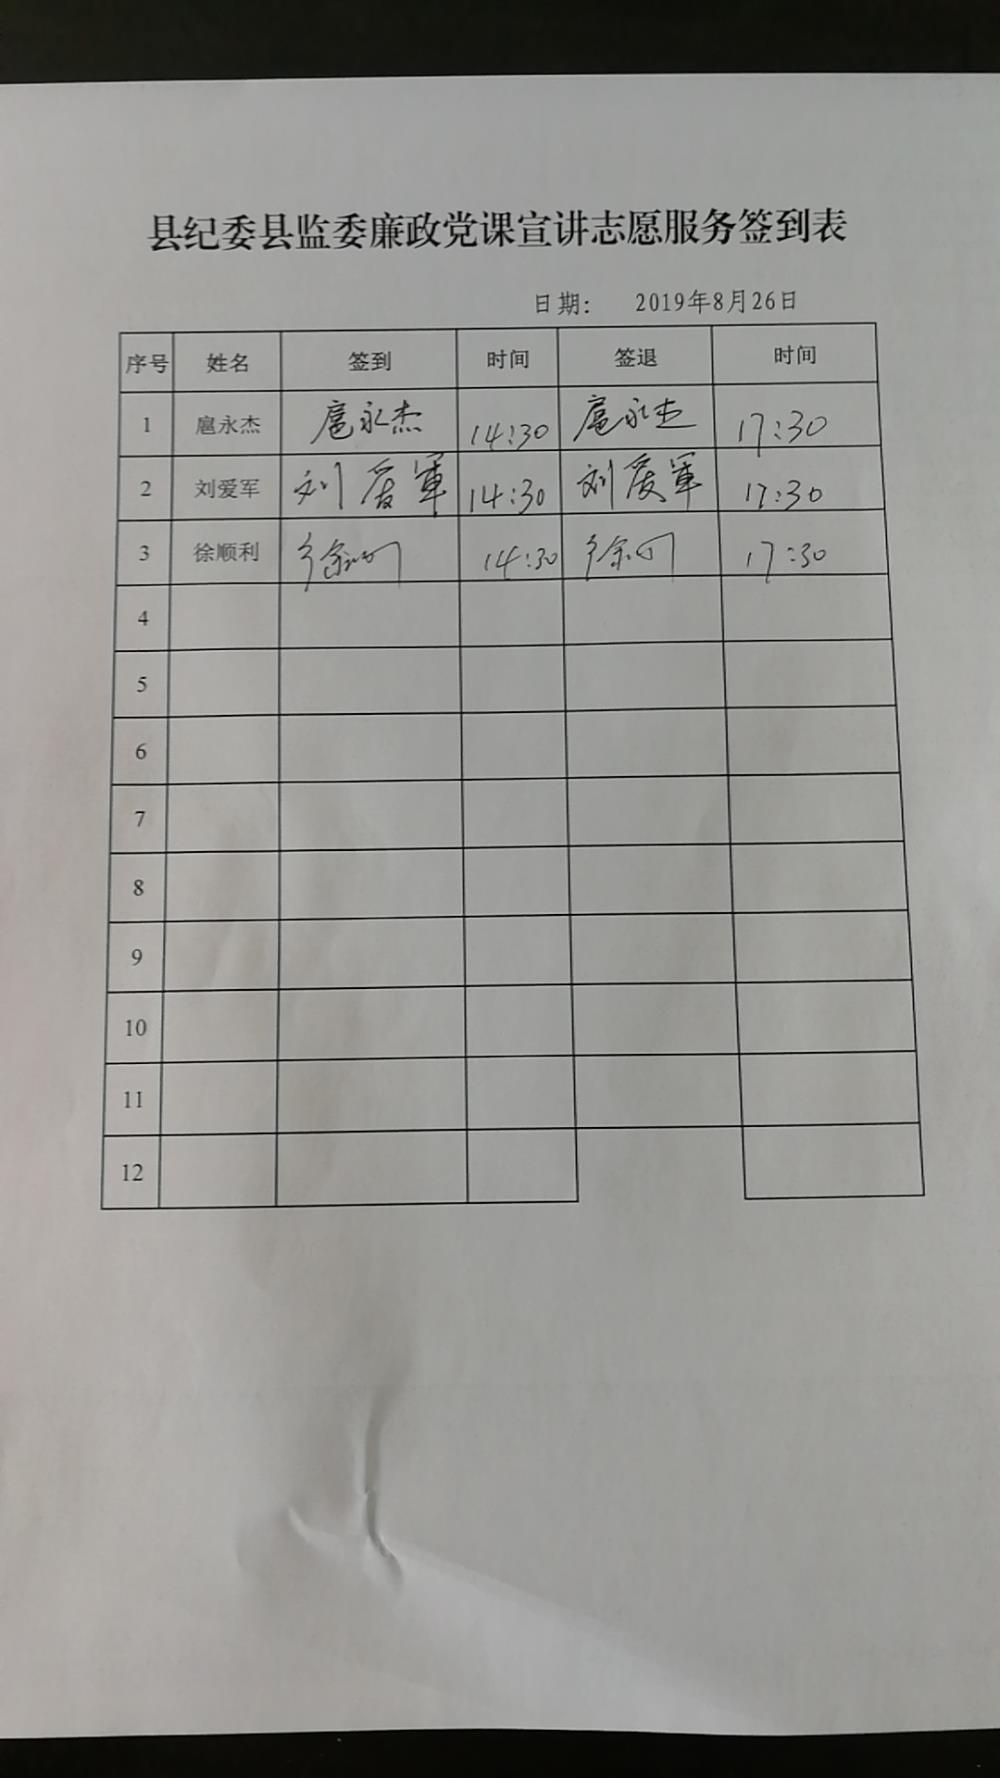 县纪委县监委廉政党课宣讲志愿服务签到表
日期： 2019年8月26日
序号 姓名 签到 时间 签退 时间
1 扈永杰 扈永杰 14:30 扈永杰 17:30
2 刘爱军 刘爱軍 14:30 刘爱軍 17:30
3 徐顺利 徐顺利 14:30 徐顺利 17:30
4
5
6
7
8
9
10
11
12